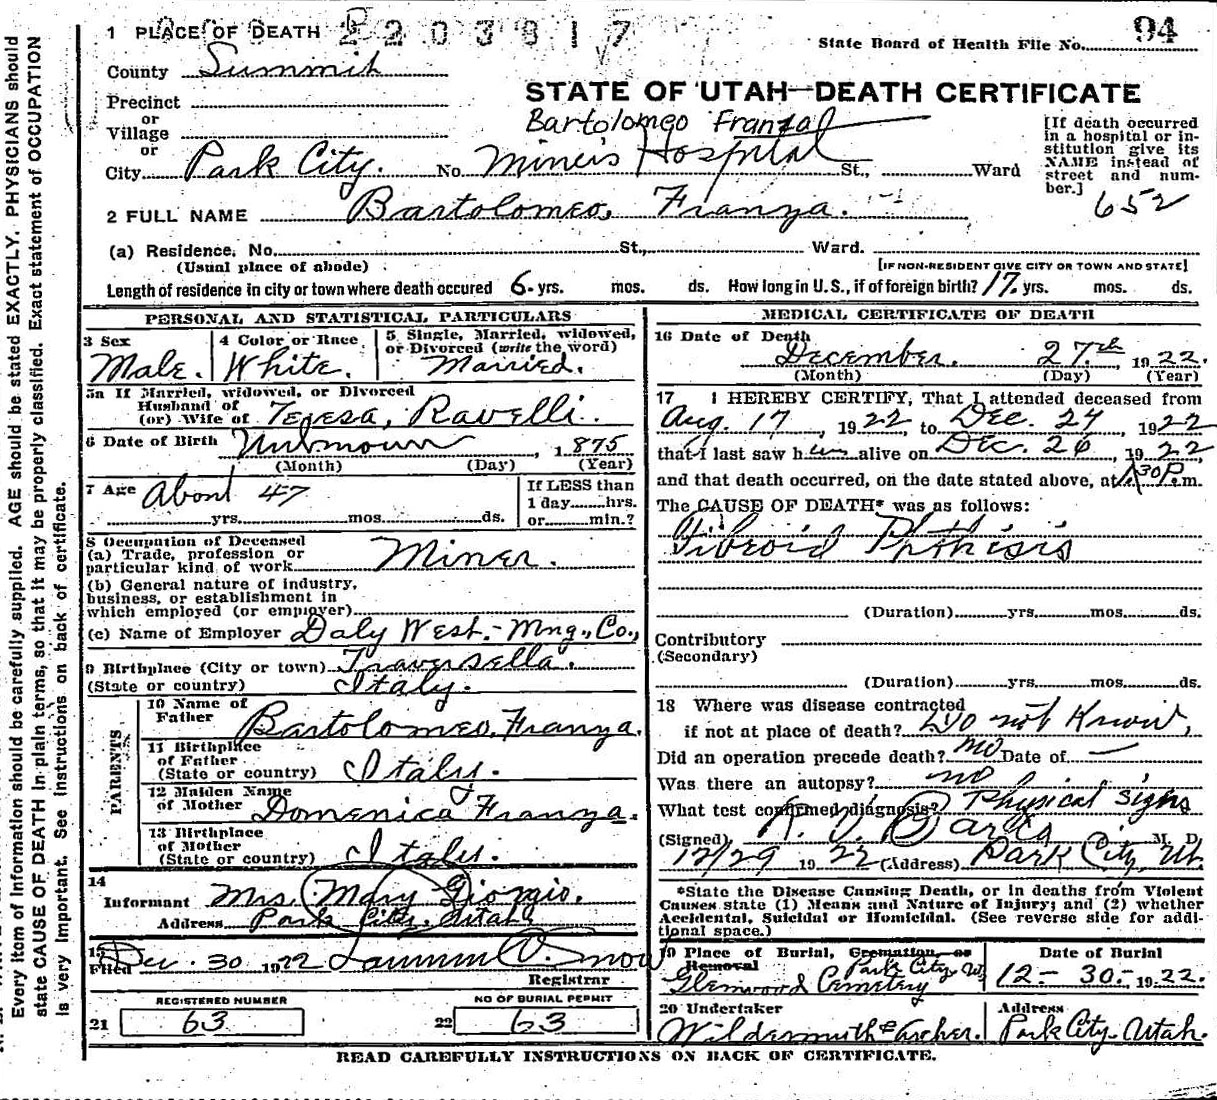 1 PLACE OF DEATH 2203817
State Board of Health File No. 94
County Summit
STATE OF UTAH—DEATH CERTIFICATE
Precinct
or
Village
or
Bartolomeo Franzal
City Park City. No. Miner's Hospital St., Ward
[If death occurred
in a hospital or in-
stitution give its
NAME instead of
street and num-
ber.]
652
2 FULL NAME Bartolomeo, Franza.
(a) Residence, No. St., Ward.
(Usual place of abode)
[IF NON-RESIDENT GIVE CITY OR TOWN AND STATE]
Length of residence in city or town where death occured 6 yrs. mos. ds. How long in U.S., if of foreign birth? 17. yrs. mos. ds.
PERSONAL AND STATISTICAL PARTICULARS
3 Sex
Male.
4 Color or Race
White.
5 Single, Married, widowed,
or Divorced (write the word)
Married.
5a If Married, widowed, or Divorced
Husband of
(or) Wife of Teresa, Ravelli.
6 Date of Birth Unknown, 1875
(Month) (Day) (Year)
7 Age About 47
yrs. mos. ds.
If LESS than
1 day hrs.
or min.?
8 Occupation of Deceased
(a) Trade, profession or
particular kind of work Miner.
(b) General nature of industry,
business, or establishment in
which employed (or employer)
(c) Name of Employer Daly West. Mng., Co.,
9 Birthplace (City or town) Traversella.
(State or country) Italy.
PARENTS
10 Name of
Father Bartolomeo, Franza.
11 Birthplace
of Father
(State or country) Italy.
12 Maiden Name
of Mother Domenica Franza.
13 Birthplace
of Mother
(State or country) Italy.
14
Informant Mrs. Mary Giorgio.
Address Park City. Utah.
15
Filed Dec. 30. 1922 O. Snow
Registrar
REGISTERED NUMBER
21 63
NO OF BURIAL PERMIT
22 63
MEDICAL CERTIFICATE OF DEATH
16 Date of Death
December. 27th 1922.
(Month) (Day) (Year)
17 I HEREBY CERTIFY, That I attended deceased from
Aug. 17, 1922 to Dec. 24, 1922
that I last saw him alive on Dec. 26, 1922,
and that death occurred, on the date stated above, at 1:30 P. m.
The CAUSE OF DEATH* was as follows:
Fibroid Pthisis
(Duration) yrs. mos. ds.
Contributory
(Secondary)
(Duration) yrs. mos. ds.
18 Where was disease contracted
if not at place of death? Do not Know,
Did an operation precede death? no Date of —
Was there an autopsy? no
What test confirmed diagnosis? Physical signs
(Signed) M. D.
12/29 1922 (Address) Park City, Ut.
*State the Disease Causing Death, or in deaths from Violent
Causes state (1) Means and Nature of Injury; and (2) whether
Accidental, Suicidal or Homicidal. (See reverse side for addi-
tional space.)
19 Place of Burial, Cremation, or
Removal Park City Ut
Glenwood Cemetery
Date of Burial
12 - 30 - 1922.
20 Undertaker
Wildermuth & Archer.
Address
Park City. Utah.
READ CAREFULLY INSTRUCTIONS ON BACK OF CERTIFICATE.
Every item of Information should be carefully supplied. AGE should be stated EXACTLY. PHYSICIANS should
state CAUSE OF DEATH in plain terms, so that it may be properly classified. Exact statement of OCCUPATION
is very Important. See Instructions on back of certificate.